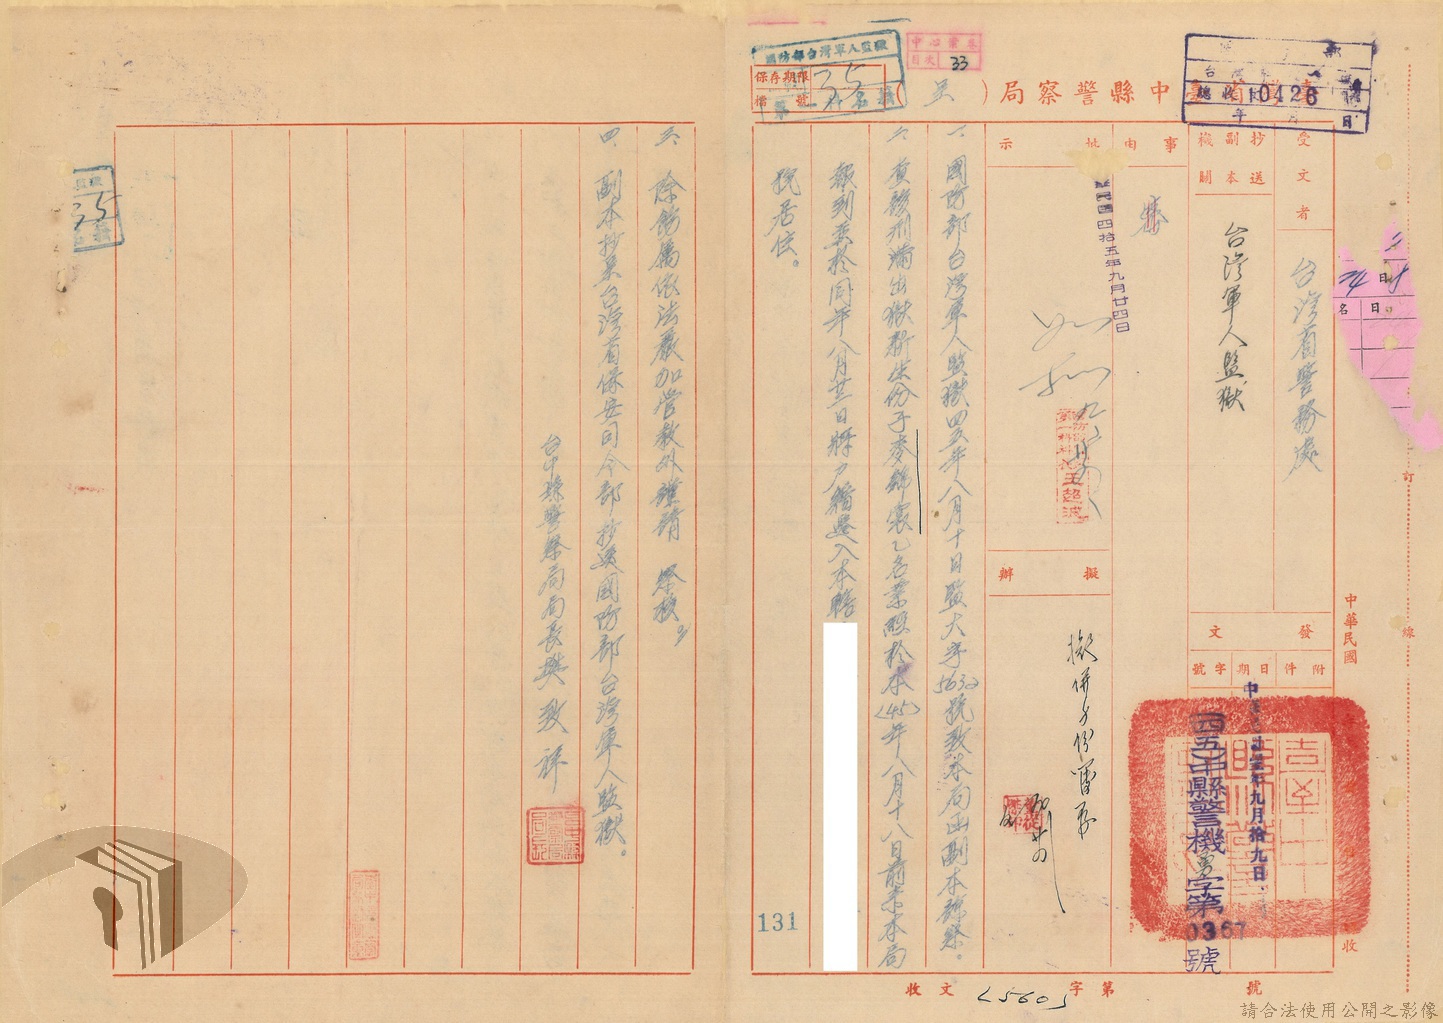 國防部台灣軍人監獄
保存期限
檔號
35
中心業務
目次 33
台中縣警察局（呈）
總收文 10426
年月日
受文者
台灣省警務處
抄送副本機關
台灣軍人監獄
事由
批示
擬辦
中華民國四拾五年九月廿四日
如擬
王超波
擬併身份簿存
發文
附件
日期
字號
中華民國四拾五年九月拾九日
四五中縣警機勇字第0367號
中華民國
訂
線
收
一、國防部台灣軍人監獄四五年八月十日監大字5632號致本局函副本諒察。
二、查該刑滿出獄新生份子麥錦裳乙名業經於本(45)年八月十八日前來本局
報到業於同年八月廿三日將戶籍遷入本轄
號居住。
三、除飭屬依法嚴加管教外謹請 察核。
四、副本抄呈台灣省保安司令部抄送國防部台灣軍人監獄。
台中縣警察局局長樊致祥
131
收文
字第
號
請合法使用公開之影像